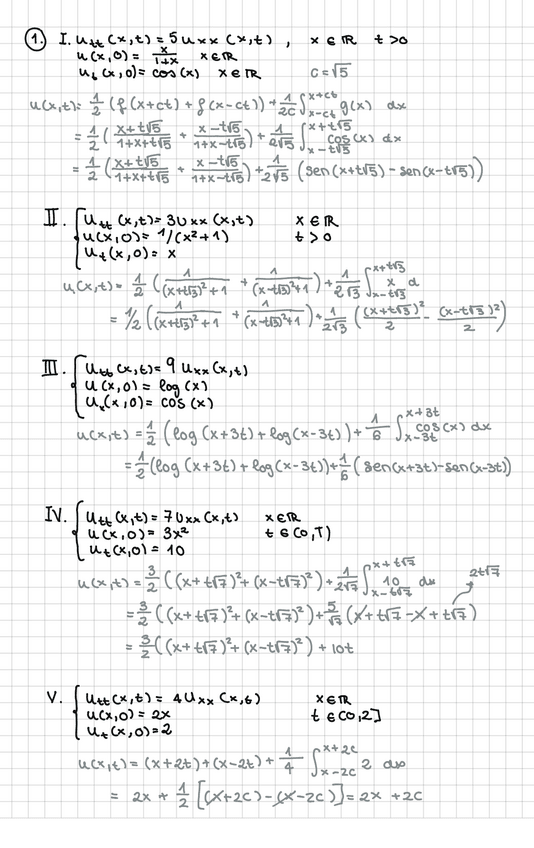 1. I. u_tt(x,t) = 5 u_xx(x,t) , x ∈ ℝ t > 0
u(x,0) = x/(1+x) x ∈ ℝ
u_t(x,0) = cos(x) x ∈ ℝ c = √5
u(x,t) = 1/2 (f(x+ct) + f(x-ct)) + 1/(2c) ∫_{x-ct}^{x+ct} g(x) dx
= 1/2 ( (x+t√5)/(1+x+t√5) + (x-t√5)/(1+x-t√5) ) + 1/(2√5) ∫_{x-t√5}^{x+t√5} cos(x) dx
= 1/2 ( (x+t√5)/(1+x+t√5) + (x-t√5)/(1+x-t√5) ) + 1/(2√5) (sen(x+t√5) - sen(x-t√5))
II. u_tt(x,t) = 3u_xx(x,t) x ∈ ℝ
u(x,0) = 1/(x²+1) t > 0
u_t(x,0) = x
u(x,t) = 1/2 ( 1/((x+t√3)²+1) + 1/((x-t√3)²+1) ) + 1/(2√3) ∫_{x-t√3}^{x+t√3} x d
= 1/2 ( 1/((x+t√3)²+1) + 1/((x-t√3)²+1) ) + 1/(2√3) ( (x+t√3)²/2 - (x-t√3)²/2 )
III. u_tt(x,t) = 9 u_xx(x,t)
u(x,0) = log(x)
u_t(x,0) = cos(x)
u(x,t) = 1/2 (log(x+3t) + log(x-3t)) + 1/6 ∫_{x-3t}^{x+3t} cos(x) dx
= 1/2 (log(x+3t) + log(x-3t)) + 1/6 (sen(x+3t) - sen(x-3t))
IV. u_tt(x,t) = 7u_xx(x,t) x ∈ ℝ
u(x,0) = 3x² t ∈ (0,T)
u_t(x,0) = 10
u(x,t) = 3/2 ((x+t√7)² + (x-t√7)²) + 1/(2√7) ∫_{x-t√7}^{x+t√7} 10 dx 2t√7
= 3/2 ((x+t√7)² + (x-t√7)²) + 5/√7 (x + t√7 - x + t√7)
= 3/2 ((x+t√7)² + (x-t√7)²) + 10t
V. u_tt(x,t) = 4u_xx(x,t) x ∈ ℝ
u(x,0) = 2x t ∈ (0,2]
u_t(x,0) = 2
u(x,t) = (x+2t) + (x-2t) + 1/4 ∫_{x-2c}^{x+2c} 2 dx
= 2x + 1/2 [(x+2c) - (x-2c)] = 2x + 2c